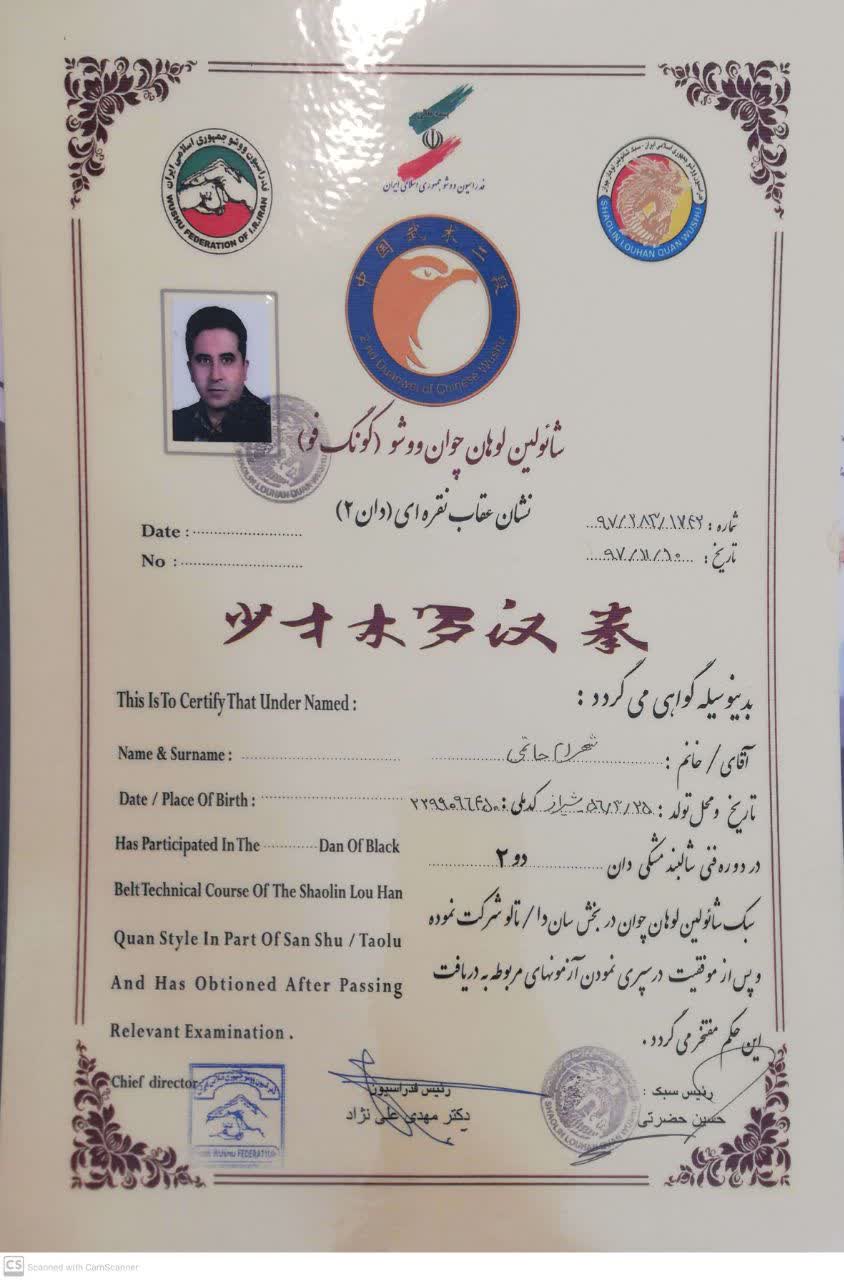 بسمه تعالی
فدراسیون ووشو جمهوری اسلامی ایران
فدراسیون ووشو جمهوری اسلامی ایران
WUSHU FEDERATION OF I.R.IRAN
SHAOLIN LOUHAN QUAN WUSHU
中国武术二段
2nd Duanwei of Chinese Wushu
شائولین لوهان چوان ووشو (گونگ فو)
نشان عقاب نقره ای (دان ۲)
Date :
No :
شماره : ۹۷/۲۸۳/۱۷۶۲
تاریخ : ۹۷/۱۱/۱۰
少林罗汉拳
This Is To Certify That Under Named :
بدینوسیله گواهی می گردد :
Name & Surname :
آقای / خانم : شهرام حاتمی
Date / Place Of Birth :
تاریخ و محل تولد : ۵۶/۴/۲۵ شیراز کدملی :
Has Participated In The Dan Of Black
در دوره فنی شالبند مشکی دان دو ۲
Belt Technical Course Of The Shaolin Lou Han
سبک شائولین لوهان چوان در بخش سان دا / تالو شرکت نموده
Quan Style In Part Of San Shu / Taolu
و پس از موفقیت در سپری نمودن آزمونهای مربوطه به دریافت
And Has Obtioned After Passing
این حکم مفتخر می گردد.
Relevant Examination .
Chief director
رئیس فدراسیون
دکتر مهدی علی نژاد
رئیس سبک :
حسین حضرتی
CS Scanned with CamScanner